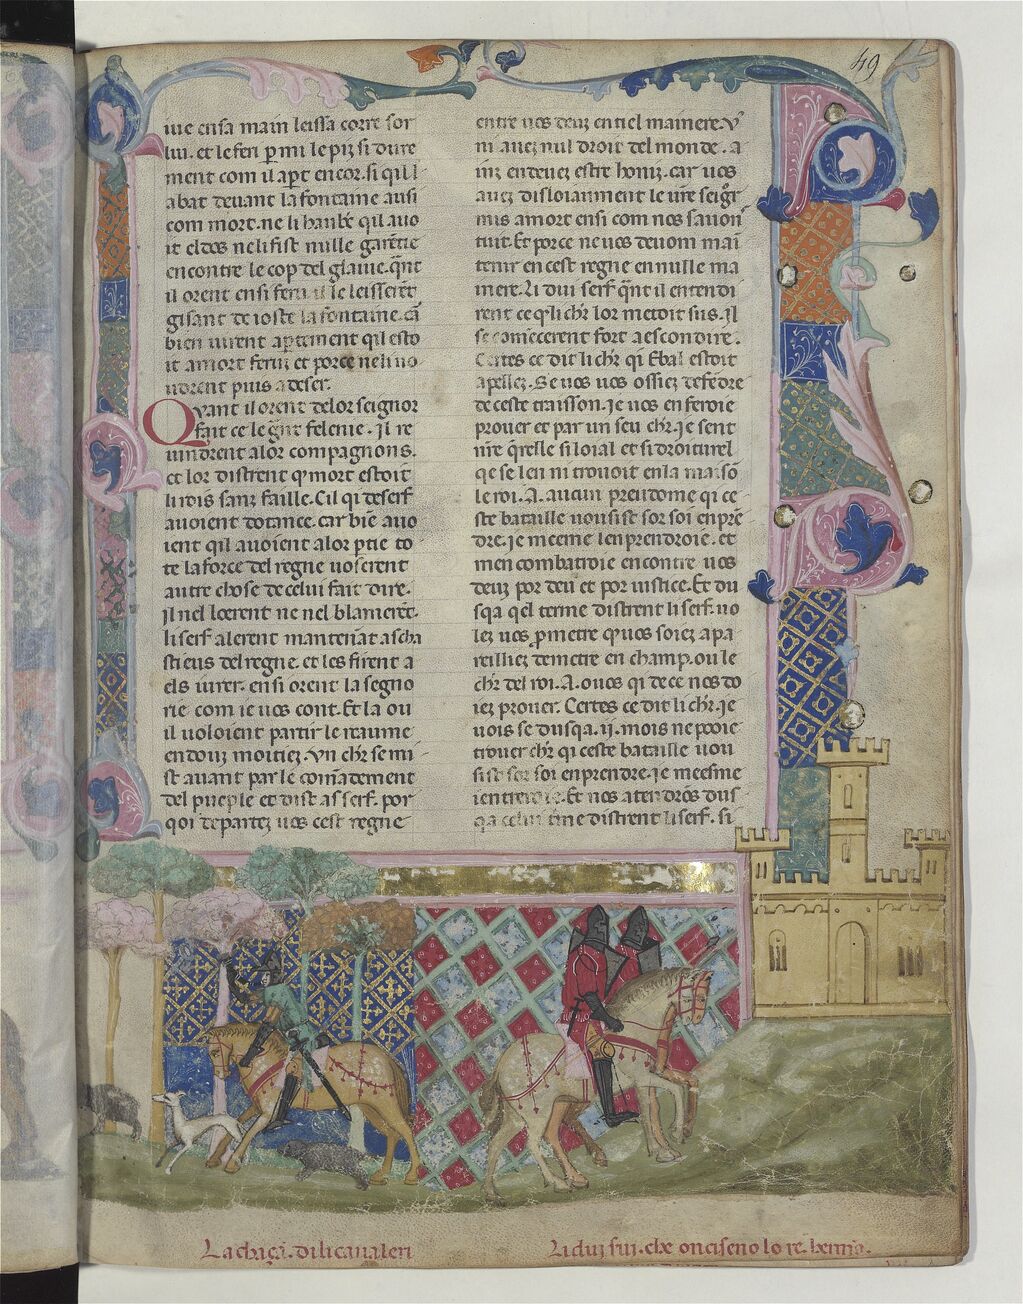 49
uie en sa main leissa corre sor
lui. et le feri p mi le piz si dure
ment com il apt encor. si qil l
abat deuant la fontaine ausi
com mort. ne li haub̄c qil auo
it el dos ne li fist nulle garētie
encontre le cop del glaiue. q̄nt
il orent ensi feru il le leisserēt
gisant de ioste la fontaine. cā
bien uirent aptement qil esto
it a mort feruz et porce ne li uo
udrent puis adeser.
Qvant il orent de lor seignor
fait ce le gn̄t felenie. il re
uindrent a lor compagnons.
et lor distrent q' mort estoit
li rois sanz faille. Cil qi de serf
auoient dotance. car biē auo
ient qil auoient a lor ptie to
te la force del regne n'oserent
autre chose de celui fait dire.
il nel loerent ne nel blamerēt.
li serf alerent mantenāt as cha
stieus del regne. et les firent a
els iurer. ensi orent la segno
rie com ie uos cont. Et la ou
il uoloient partir le reaume
en douz moitiez. vn chr̄ se mi
st auant par le comādement
del pueple et dist as serf. por
qoi departez uos cest regne
entre uos deuz en tiel mainere. V'
ni auez nul droit del monde. a
inz en deuez estre honiz. car uos
auez disloiaument le u're seigr̄
mis a mort ensi com nos sauon
tuit. Et porce ne uos deuom mai
tenir en cest regne en nulle ma
inere. Li dui serf q̄nt il entendi
rent ce q̄ li chr̄ lor metoit sus. il
se comēcerent fort a escondire.
Certes ce dit li chr̄ qi Ebal estoit
apellez. Se uos uos ossiez defēdre
de ceste traisson. ie uos en feroie
prouer et par un seu chr̄. ie sent
n're q̄relle si loial et si droiturel
qe se l en ni trouoit en la maisō
le roi .A. aucun preudome qi ce
ste bataille uousist sor soi enprē
dre. ie meeme l enprendroie. et
men combatroie encontre uos
deuz por deu et por iustice. Et du
sqa qel terme distrent li serf. uo
lez uos pmetre q' uos soiez apa
reilliez de metre en champ. ou le
chr̄ del roi .A. o uos qi de ce nos do
iez prouer. Certes ce dit li chr̄. ie
uois se dusqa .ii. mois ne pooie
trouer chr̄ qi ceste bataille uou
sist sor soi enprendre. ie meesme
i enterroie. Et nos atendrōs dus
qa celui t'me distrent li serf. si
La chaçā. di li caualeri
Li dui sur. che onciseno lo re. hermā.